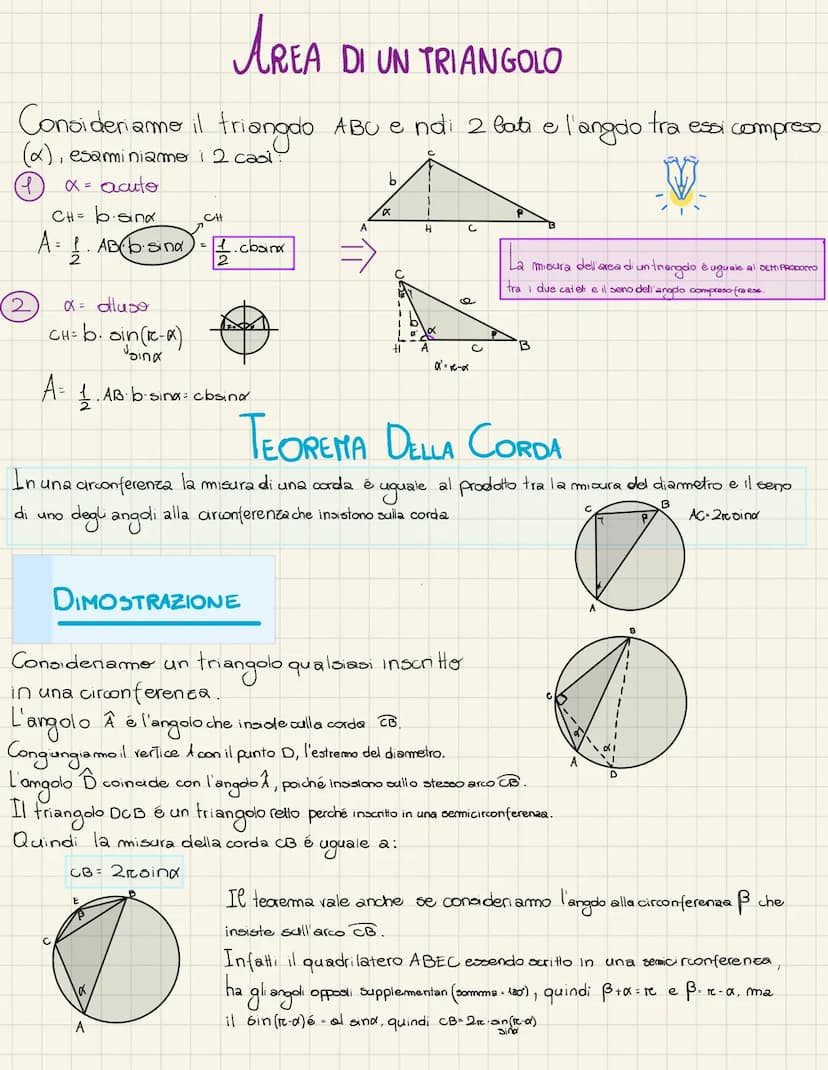 AREA DI UN TRIANGOLO
Consideriamo il triangolo ABC e noti 2 lati e l'angolo tra essi compreso
(α), esaminiamo i 2 casi:
1 α = acuto
CH = b·sinα
CH
A = 1/2 · AB·b·sinα = 1/2 · cbsinα
⇒
C
b
α
β
A
H
c
B
La misura dell'area di un triangolo è uguale al SEMIPRODOTTO
tra i due cateti e il seno dell'angolo compreso fra essi.
2 α = ottuso
CH = b· sin(π-α)
sinα
A = 1/2 · AB·b·sinα = cbsinα
C
a
b
α
β
H
A
c
B
α' = π-α
TEOREMA DELLA CORDA
In una circonferenza la misura di una corda è uguale al prodotto tra la misura del diametro e il seno
di uno degli angoli alla circonferenza che insistono sulla corda
C
B
γ
β
A
AC = 2r sinα
DIMOSTRAZIONE
Consideriamo un triangolo qualsiasi inscritto
in una circonferenza.
L'angolo Â è l'angolo che insiste sulla corda CB.
Congiungiamo il vertice A con il punto D, l'estremo del diametro.
L'angolo D̂ coincide con l'angolo Â, poiché insistono sullo stesso arco CB.
Il triangolo DCB è un triangolo retto perché inscritto in una semicirconferenza.
Quindi la misura della corda CB è uguale a:
CB = 2r sinα
B
C
α
α'
A
D
E
B
β
C
α
A
Il teorema vale anche se consideriamo l'angolo alla circonferenza β che
insiste sull'arco CB.
Infatti il quadrilatero ABEC essendo scritto in una semicirconferenza,
ha gli angoli opposti supplementari (somma = 180°), quindi β+α = π e β = π-α, ma
il sin(π-α) è = al sinα, quindi CB = 2r·sin(π-α)
sinα